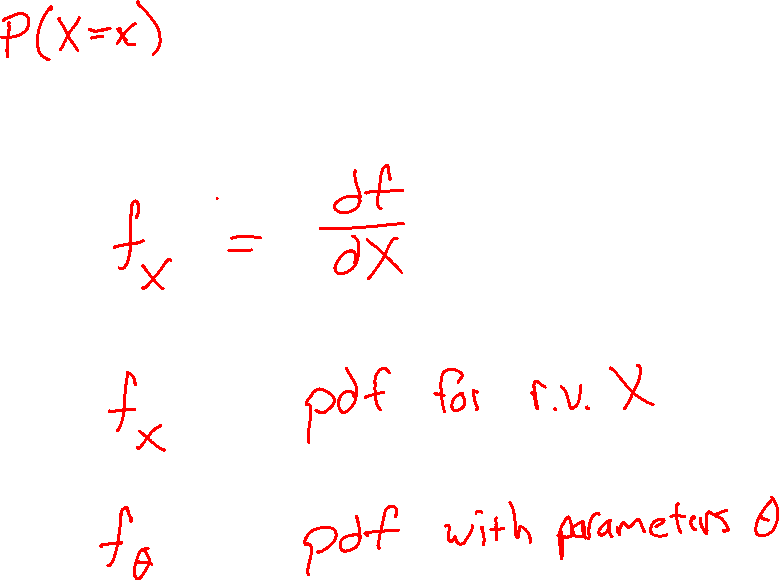 P(X=x)
f_x = df/dX
f_x pdf for r.v. X
f_θ pdf with parameters θ